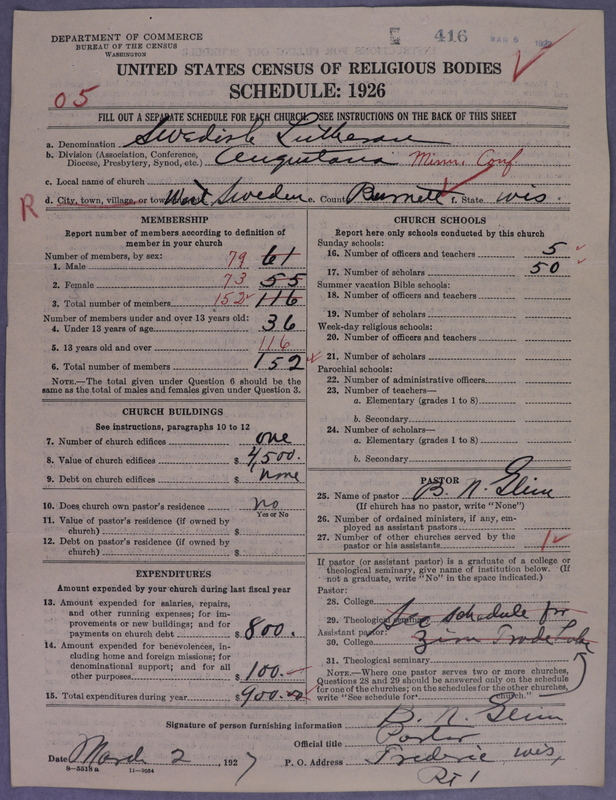 DEPARTMENT OF COMMERCE
BUREAU OF THE CENSUS
WASHINGTON
416
UNITED STATES CENSUS OF RELIGIOUS BODIES
SCHEDULE: 1926
05
FILL OUT A SEPARATE SCHEDULE FOR EACH CHURCH. SEE INSTRUCTIONS ON THE BACK OF THIS SHEET
a. Denomination Swedish Lutheran
b. Division (Association, Conference, Diocese, Presbytery, Synod, etc.) Augustana Minn. Conf
c. Local name of church
R d. City, town, village, or town West Sweden e. County Burnett f. State Wis.
MEMBERSHIP
Report number of members according to definition of
member in your church
Number of members, by sex:
1. Male 79 61
2. Female 73 55
3. Total number of members 152 116
Number of members under and over 13 years old:
4. Under 13 years of age 36
5. 13 years old and over 116
6. Total number of members 152
NOTE.—The total given under Question 6 should be the
same as the total of males and females given under Question 3.
CHURCH BUILDINGS
See instructions, paragraphs 10 to 12
7. Number of church edifices one
8. Value of church edifices $ 4,500.
9. Debt on church edifices $ none
10. Does church own pastor's residence? no
Yes or No
11. Value of pastor's residence (if owned by
church) $
12. Debt on pastor's residence (if owned by
church) $
EXPENDITURES
Amount expended by your church during last fiscal year
13. Amount expended for salaries, repairs,
and other running expenses; for im-
provements or new buildings; and for
payments on church debt $ 800.
14. Amount expended for benevolences, in-
cluding home and foreign missions; for
denominational support; and for all
other purposes 100.
15. Total expenditures during year $ 900.00
CHURCH SCHOOLS
Report here only schools conducted by this church
Sunday schools:
16. Number of officers and teachers 5
17. Number of scholars 50
Summer vacation Bible schools:
18. Number of officers and teachers
19. Number of scholars
Week-day religious schools:
20. Number of officers and teachers
21. Number of scholars
Parochial schools:
22. Number of administrative officers
23. Number of teachers—
a. Elementary (grades 1 to 8)
b. Secondary
24. Number of scholars—
a. Elementary (grades 1 to 8)
b. Secondary
PASTOR
25. Name of pastor B. N. Glim
(If church has no pastor, write "None")
26. Number of ordained ministers, if any, em-
ployed as assistant pastors
27. Number of other churches served by the
pastor or his assistants 1
If pastor (or assistant pastor) is a graduate of a college or
theological seminary, give name of institution below. (If
not a graduate, write "No" in the space indicated.)
Pastor:
28. College
29. Theological seminary See schedule for
Assistant pastor:
30. College Zion Trade Lake
31. Theological seminary
NOTE.—Where one pastor serves two or more churches,
Questions 28 and 29 should be answered only on the schedule
for one of the churches; on the schedules for the other churches,
write "See schedule for church."
Signature of person furnishing information B. N. Glim
Official title Pastor
Date March 2, 1927 P. O. Address Frederic Wis,
Rt 1
8—5513 a 11—9054